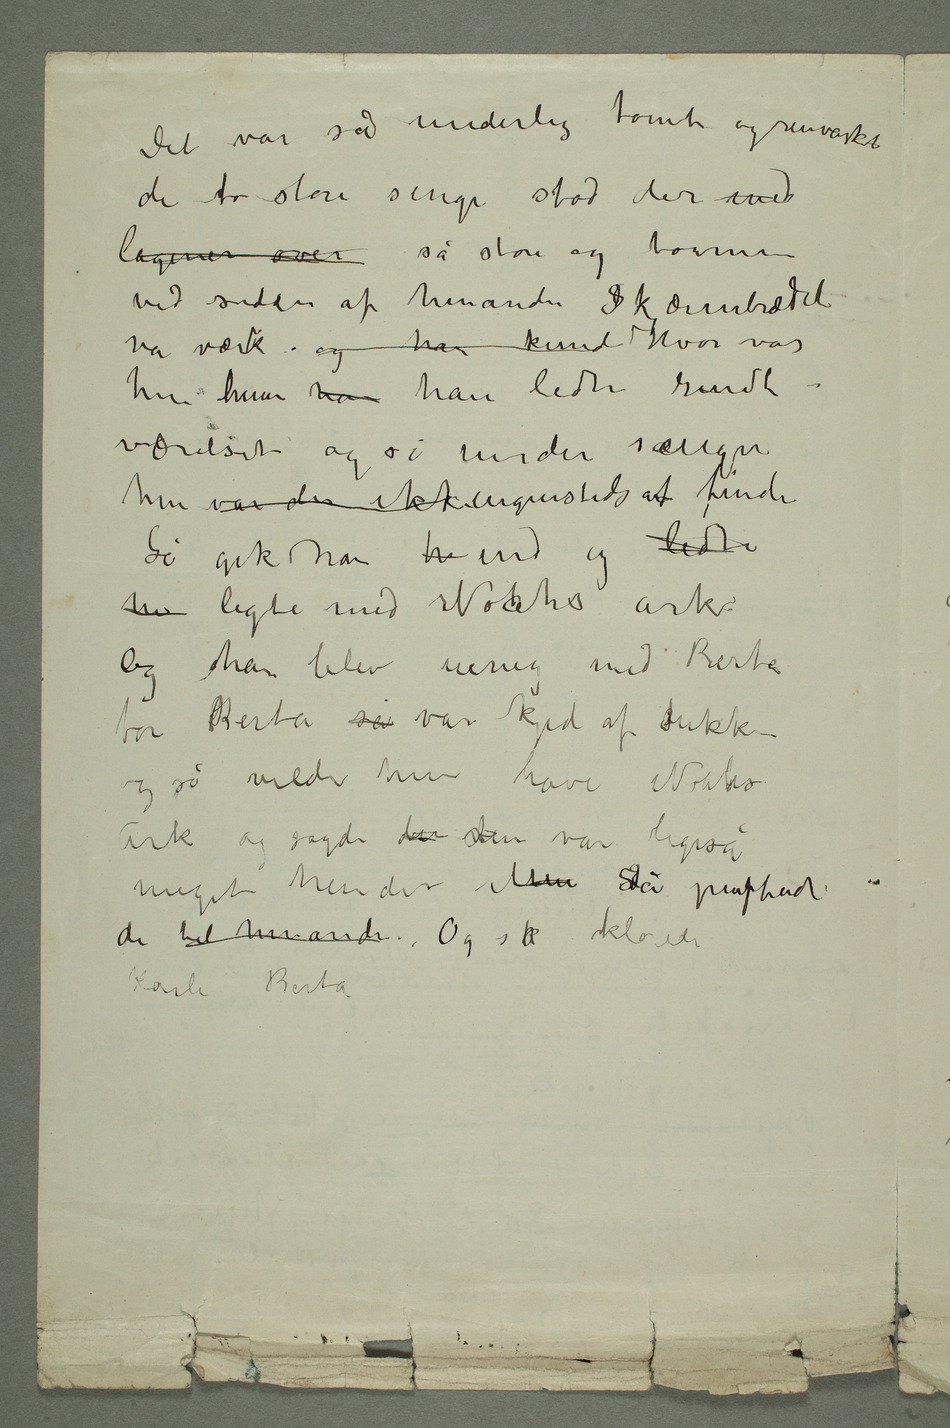 Det var så underlig tomt og renvasket
de to store senge stod der med
lagener over så store og tomme
ved siden af hinanden Skærmbrædet
va væk. og han kund Hvor var
hun hun han han ledte rundt i
værelset og så under sængen
hun var der ikke ingensteds at finde
Så gik han ind og ledte
legte med Noahs ark
Og han blev uenig med Berta
for Berta så var kjed af dukken
og så vilde hun have Noahs
ark og sagde den var ligeså
meget hendes Så puffede
de til hinanden. Og så kloede
Karle Berta